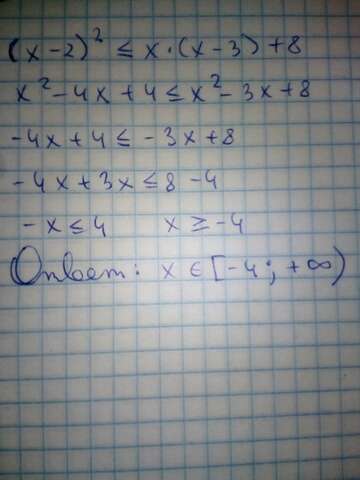 (x-2)² ≤ x·(x-3)+8
x²-4x+4 ≤ x²-3x+8
-4x+4 ≤ -3x+8
-4x+3x ≤ 8-4
-x ≤ 4 x ≥ -4
Ответ: x ∈ [-4; +∞)